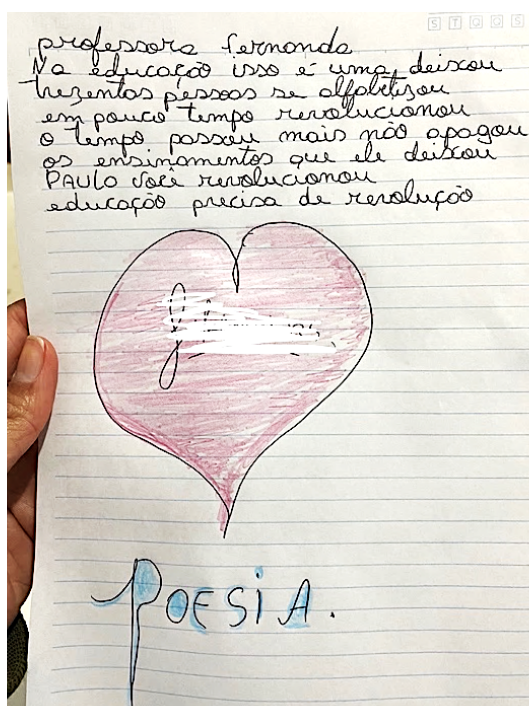 S T Q Q S
professora fernanda
Na educação isso é uma deixou
trezentas pessoas se alfabetizou
em pouco tempo revolucionou
o tempo passou mais não apagou
os ensinamentos que ele deixou
PAULO você revolucionou
educação precisa de revolução
POESIA.